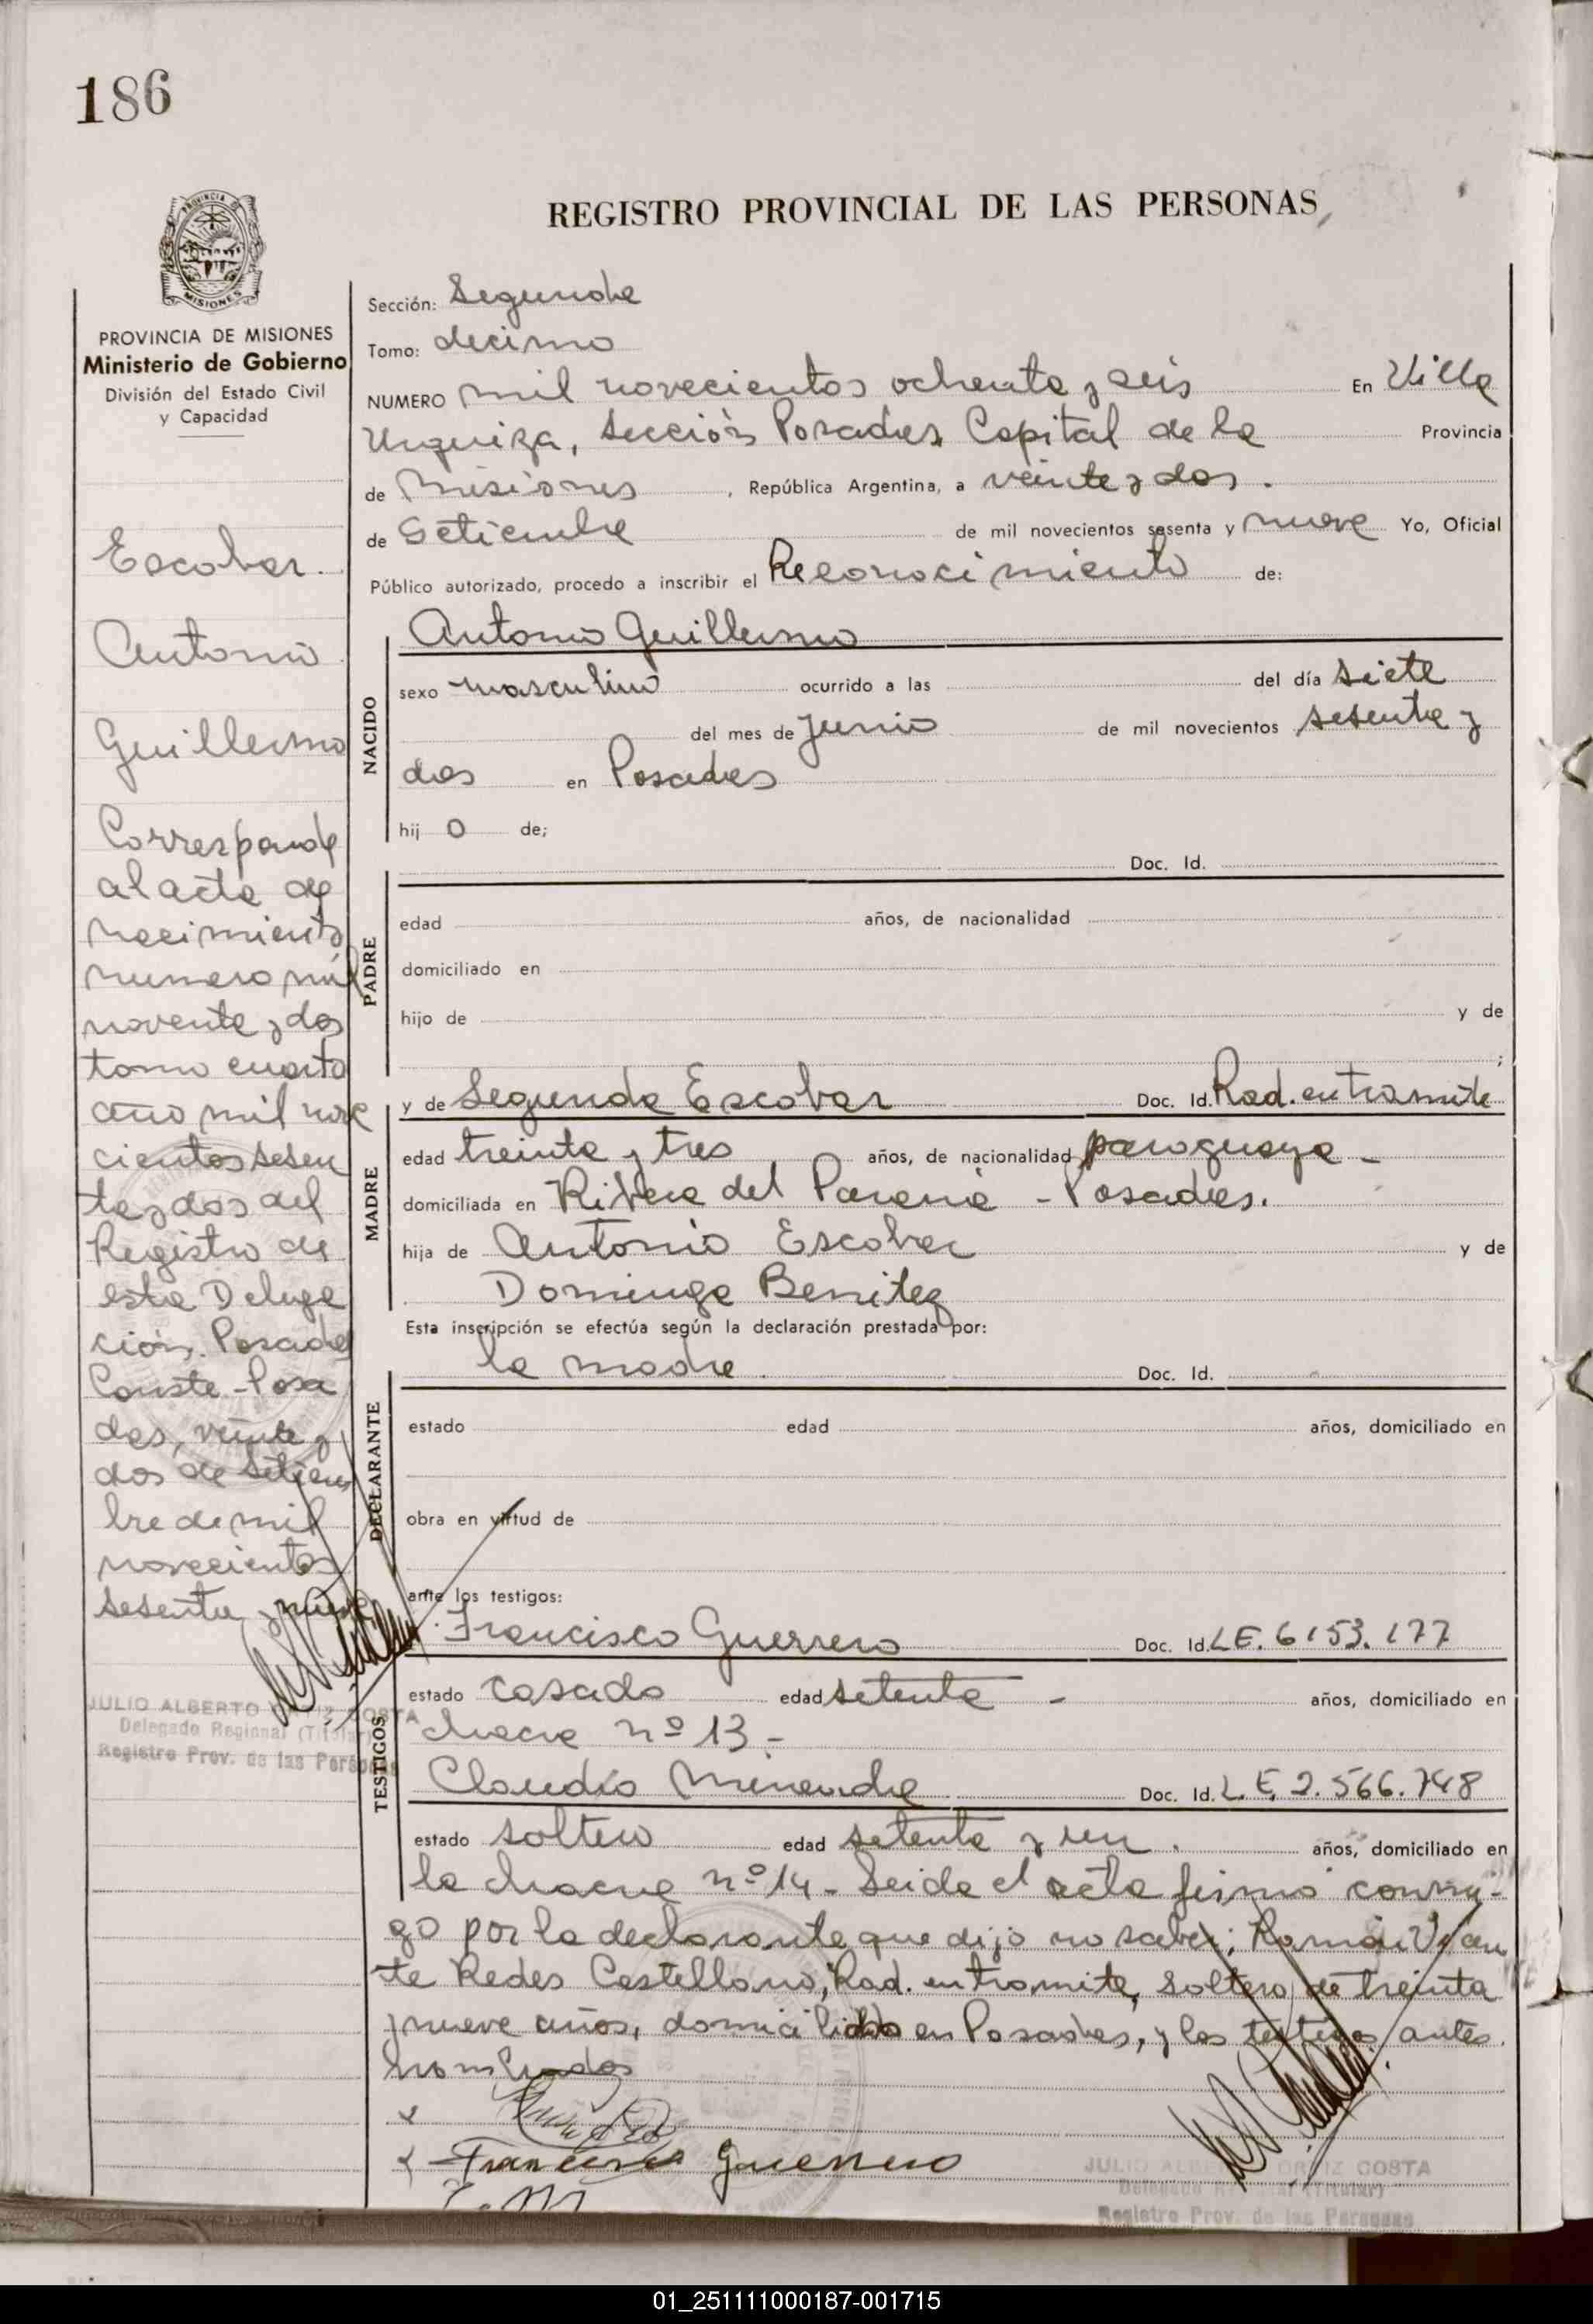 186
PROVINCIA DE
MISIONES
REGISTRO PROVINCIAL DE LAS PERSONAS
PROVINCIA DE MISIONES
Ministerio de Gobierno
División del Estado Civil
y Capacidad
Escobar.
Antonio
Guillermo
Corresponde
al acta de
nacimiento
numero mil
noventa y dos
tomo cuarto
año mil nove
cientos sesen
ta y dos del
Registro de
esta Delega
ción. Posadas
Conste - Posa
das, veinte y
dos de setiem
bre de mil
novecientos
sesenta y nueve
JULIO ALBERTO ORTIZ COSTA
Delegado Regional (Titular)
Registro Prov. de las Personas
Sección: Segunda
Tomo: decimo
NUMERO mil novecientos ochenta y seis En Villa
Urquiza, Sección Posadas Capital de la Provincia
de Misiones, República Argentina, a veinte y dos.
de Setiembre de mil novecientos sesenta y nueve Yo, Oficial
Público autorizado, procedo a inscribir el Reconocimiento de:
Antonio Guillermo
NACIDO
sexo masculino ocurrido a las del día siete
del mes de junio de mil novecientos sesenta y
dos en Posadas
hij o de;
Doc. Id.
PADRE
edad años, de nacionalidad
domiciliado en
hijo de y de
;
MADRE
y de Segunda Escobar Doc. Id. Rad. en tramite
edad treinta y tres años, de nacionalidad paraguaya -
domiciliada en Ribera del Paraná - Posadas.
hija de Antonio Escobar y de
Dominga Benitez
Esta inscripción se efectúa según la declaración prestada por:
la madre Doc. Id.
DECLARANTE
estado edad años, domiciliado en
obra en virtud de
ante los testigos:
TESTIGOS
Francisco Guerrero Doc. Id. L.E. 6153.177
estado casado edad setenta - años, domiciliado en
chacra nº 13 -
Claudio Doc. Id. L.E. 2.566.748
estado soltero edad setenta y un. años, domiciliado en
la chacra nº 14 - Leida el acta firmó conmi-
go por la declarante que dijo no saber; Ramón
Redes Castellano, Rad. en tramite, soltero, de treinta
y nueve años, domiciliado en Posadas, y los testigos antes
nombrados
x
x Francisco Guerrero
JULIO ALBERTO ORTIZ COSTA
Delegado Regional (Titular)
Registro Prov. de las Personas
01_251111000187-001715